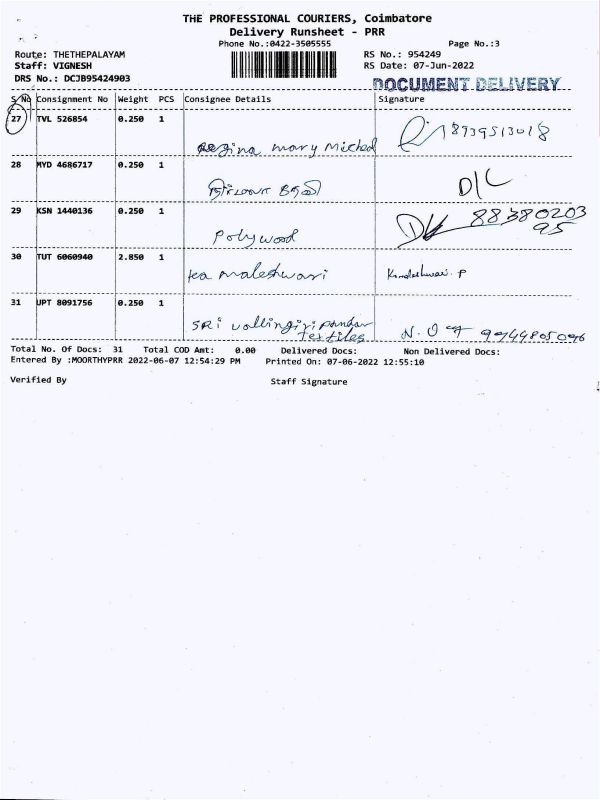 THE PROFESSIONAL COURIERS, Coimbatore
Delivery Runsheet - PRR
Phone No.:0422-3505555 Page No.:3
Route: THETHEPALAYAM RS No.: 954249
Staff: VIGNESH RS Date: 07-Jun-2022
DRS No.: DCJB95424903
DOCUMENT DELIVERY
S No Consignment No Weight PCS Consignee Details Signature
27 TVL 526854 0.250 1
Regina mary Micheal 18939513018
28 MYD 4686717 0.250 1
நிர்மலா தேவி D/L
29 KSN 1440136 0.250 1
Polywood 88380203
95
30 TUT 6060940 2.850 1
ka maleshwari Kamaleshwari. P
31 UPT 8091756 0.250 1
SRi vallingiri
Textiles 9944805096
Total No. Of Docs: 31 Total COD Amt: 0.00 Delivered Docs: Non Delivered Docs:
Entered By :MOORTHYPRR 2022-06-07 12:54:29 PM Printed On: 07-06-2022 12:55:10
Verified By Staff Signature